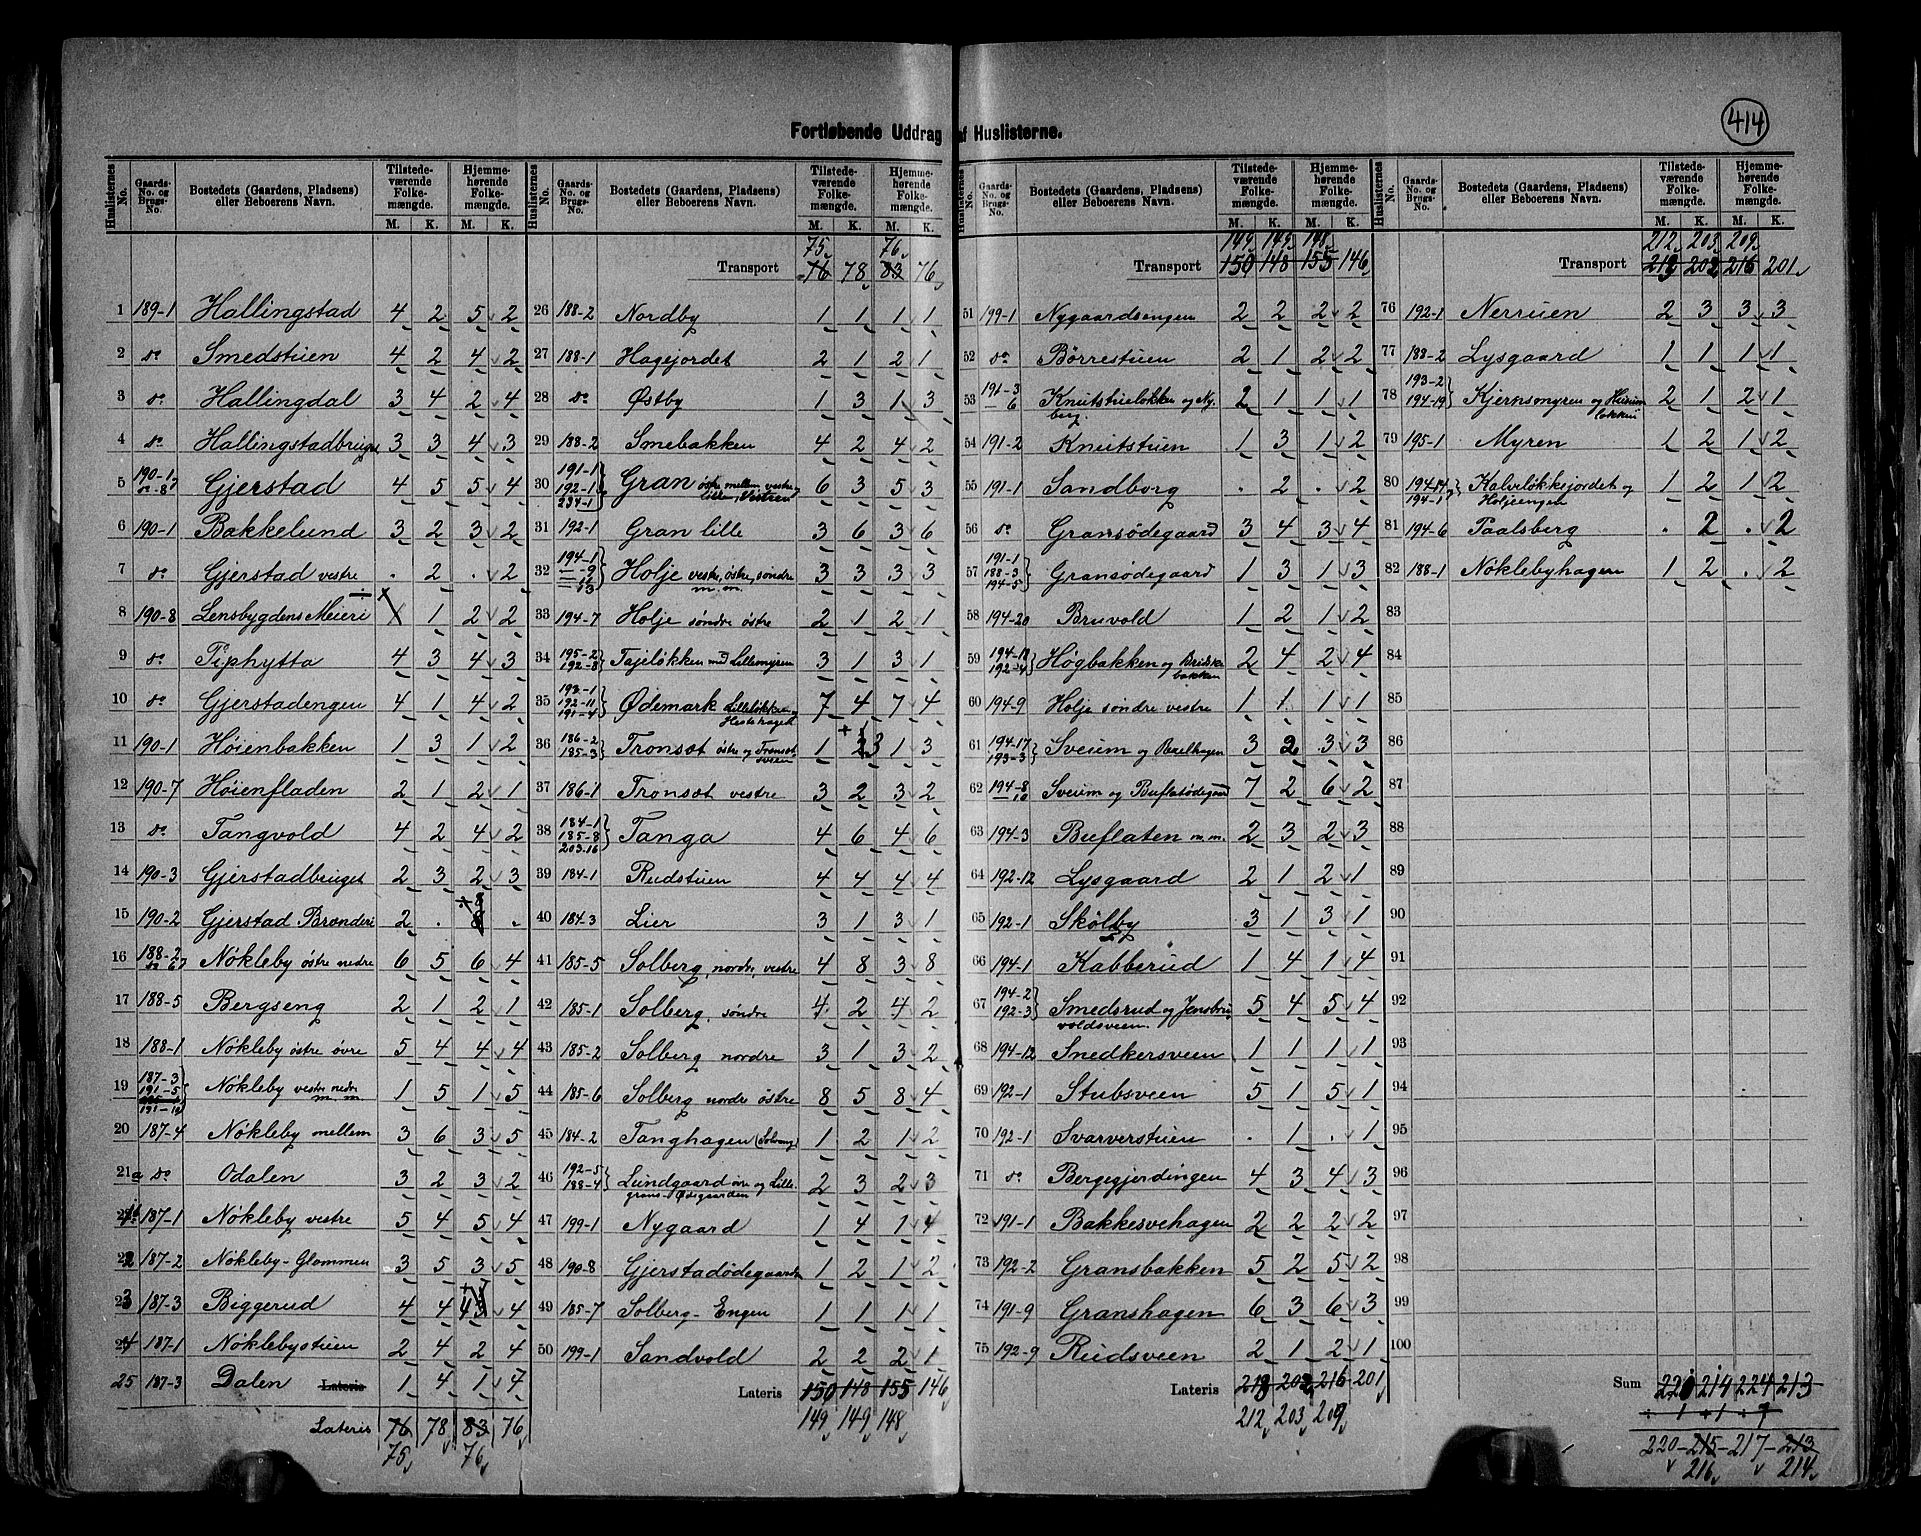 414
Fortløbende Uddrag af Huslisterne.
Huslisternes No. Gaards-No. og Brugs-No. Bostedets (Gaardens, Pladsens) eller Beboerens Navn. Tilstedeværende Folkemængde. M. K. Hjemmehørende Folkemængde. M. K.
1 189-1 Hallingstad 4 2 5 2
2 do Smedstuen 4 2 4 2
3 do Hallingdal 3 4 2 4
4 do Hallingstadbruget 3 3 4 3
5 190-1, do-8 Gjerstad 4 5 5 4
6 190-1 Bakkelund 3 2 3 2
7 do Gjerstad vestre . 2 . 2
8 190-8 Lensbygdens Meieri 1 2 2
9 do Piphytta 4 3 4 3
10 do Gjerstadengen 4 1 4 2
11 190-1 Høienbakken 1 3 1 2
12 190-7 Høienfladen 2 1 2 1
13 do Tangvold 4 2 4 2
14 190-3 Gjerstadbruget 2 3 2 3
15 190-2 Gjerstad Brænderi 2 . 8 .
16 188-2, do 6 Nøkleby østre nedre 6 5 6 4
17 188-5 Bergseng 2 1 2 1
18 188-1 Nøkleby østre øvre 5 4 4 4
19 187-3 191-5 191-12 Nøkleby vestre nedre m.m. 1 5 1 5
20 187-4 Nøkleby mellem 3 6 3 5
21a do Odalen 3 2 3 2
187-1 Nøkleby vestre 5 4 5 4
22 187-2 Nøkleby-Glommen 3 5 3 5
23 187-3 Biggerud 4 4 4 4
24 187-1 Nøklebystuen 2 4 2 4
25 187-3 Dalen Lateris 1 4 1 4
Lateris 76 78 83 76
75 76
Huslisternes No. Gaards-No. og Brugs-No. Bostedets (Gaardens, Pladsens) eller Beboerens Navn. Tilstedeværende Folkemængde. M. K. Hjemmehørende Folkemængde. M. K.
75 76
Transport 76 78 83 76
26 188-2 Nordby 1 1 1 1
27 188-1 Hagejordet 2 1 2 1
28 do Østby 1 3 1 3
29 188-2 Smebakken 4 2 4 2
30 191-1 192-1 234-1 Gran østre mellem, vestre, 6 3 5 3
31 192-1 Gran lille 3 6 3 6
32 194-1 Holje vestre, østre, søndre m.m. 3 3 3 3
33 194-7 Holje søndre østre 2 1 2 1
34 195-2 192-8 Tajeløkken med Lillemyren 3 1 3 1
35 193-1 192-11 191-4 Ødemark Lilleløkken og Hestehaget 7 4 7 4
36 186-2 185-3 Tronsæt østre og Tronsætsveen 1 3 1 3
37 186-1 Tronsæt vestre 3 2 3 2
38 184-1 185-8 203.16 Tanga 4 6 4 6
39 184-1 Rudstuen 4 4 4 4
40 184-3 Lier 3 1 3 1
41 185-5 Solberg, nordre, vestre 4 8 3 8
42 185-1 Solberg, søndre 4 2 4 2
43 185-2 Solberg nordre 3 1 3 2
44 185-6 Solberg nordre østre 8 5 8 4
45 184-2 Tanghagen (Solvang) 1 2 1 2
46 192-5 188-4 Lundgaard øvre og Lille grans-Ødegaarden 2 3 2 3
47 199-1 Nygaard 1 4 1 4
48 190-8 Gjerstadødegaarden 1 2 1 2
49 185-7 Solberg-Engen 1 1 1 1
50 199-1 Sandvold 2 2 2 1
Lateris 150 148 155 146
149 149 148
Huslisternes No. Gaards-No. og Brugs-No. Bostedets (Gaardens, Pladsens) eller Beboerens Navn. Tilstedeværende Folkemængde. M. K. Hjemmehørende Folkemængde. M. K.
149 149 148
Transport 150 148 155 146
51 199-1 Nygaardsengen 2 2 2 2
52 do Børrestuen 2 1 2 2
53 191-3 — 6 Knutstueløkken og Nyberg. 2 1 1 1
54 191-2 Knutstuen 1 3 1 2
55 191-1 Sandborg . 2 . 2
56 do Gransødegaard 3 4 3 4
57 191-1 188-3 194-5 Gransødegaard 1 3 1 3
58 194-20 Bruvold 1 2 1 2
59 194-18 192-4 Høgbakken og 2 4 2 4
60 194-9 Holje søndre vestre 1 1 1 1
61 194-17 193-3 Sveum og 3 2 3 3
62 194-8 — 10 Sveum og Buflatødegaard 7 2 6 2
63 194-3 Buflaten m.m. 2 3 2 3
64 192-12 Lysgaard 2 1 2 1
65 192-1 Skølby 3 1 3 1
66 194-1 Kabberud 1 4 1 4
67 194-2 192-3 Smedsrud og Jensbruvoldsveen. 5 4 5 4
68 194-12 Snedkersveen 1 1 1 1
69 192-1 Stubsveen 5 1 5 1
70 192-1 Svarverstuen . 1 . 1
71 do Bergegjerdingen 4 3 4 3
72 191-1 Bakkesvehagen 2 2 2 2
73 192-2 Gransbakken 5 2 5 2
74 191-9 Granshagen 6 3 6 3
75 192-9 Rudsveen 2 1 2 1
Lateris 218 202 216 201
212 203 209
Huslisternes No. Gaards-No. og Brugs-No. Bostedets (Gaardens, Pladsens) eller Beboerens Navn. Tilstedeværende Folkemængde. M. K. Hjemmehørende Folkemængde. M. K.
212 203 209
Transport 213 202 216 201
76 192-1 Nerruen 2 3 3 3
77 188-2 Lysgaard 1 1 1 1
78 193-2 194-19 Kjernsmyren og 2 1 2 1
79 195-1 Myren 1 2 1 2
80 194-14 194-1 Kalveløkkejordet og Holjeengen 1 2 1 2
81 194-6 Paalsberg . 2 . 2
82 188-1 Nøklebyhagen 1 2 . 2
83
84
85
86
87
88
89
90
91
92
93
94
95
96
97
98
99
100
Sum 221 214 224 213
÷ 1 +1 ÷ 7
220 - 215 - 217 - 213
216 214